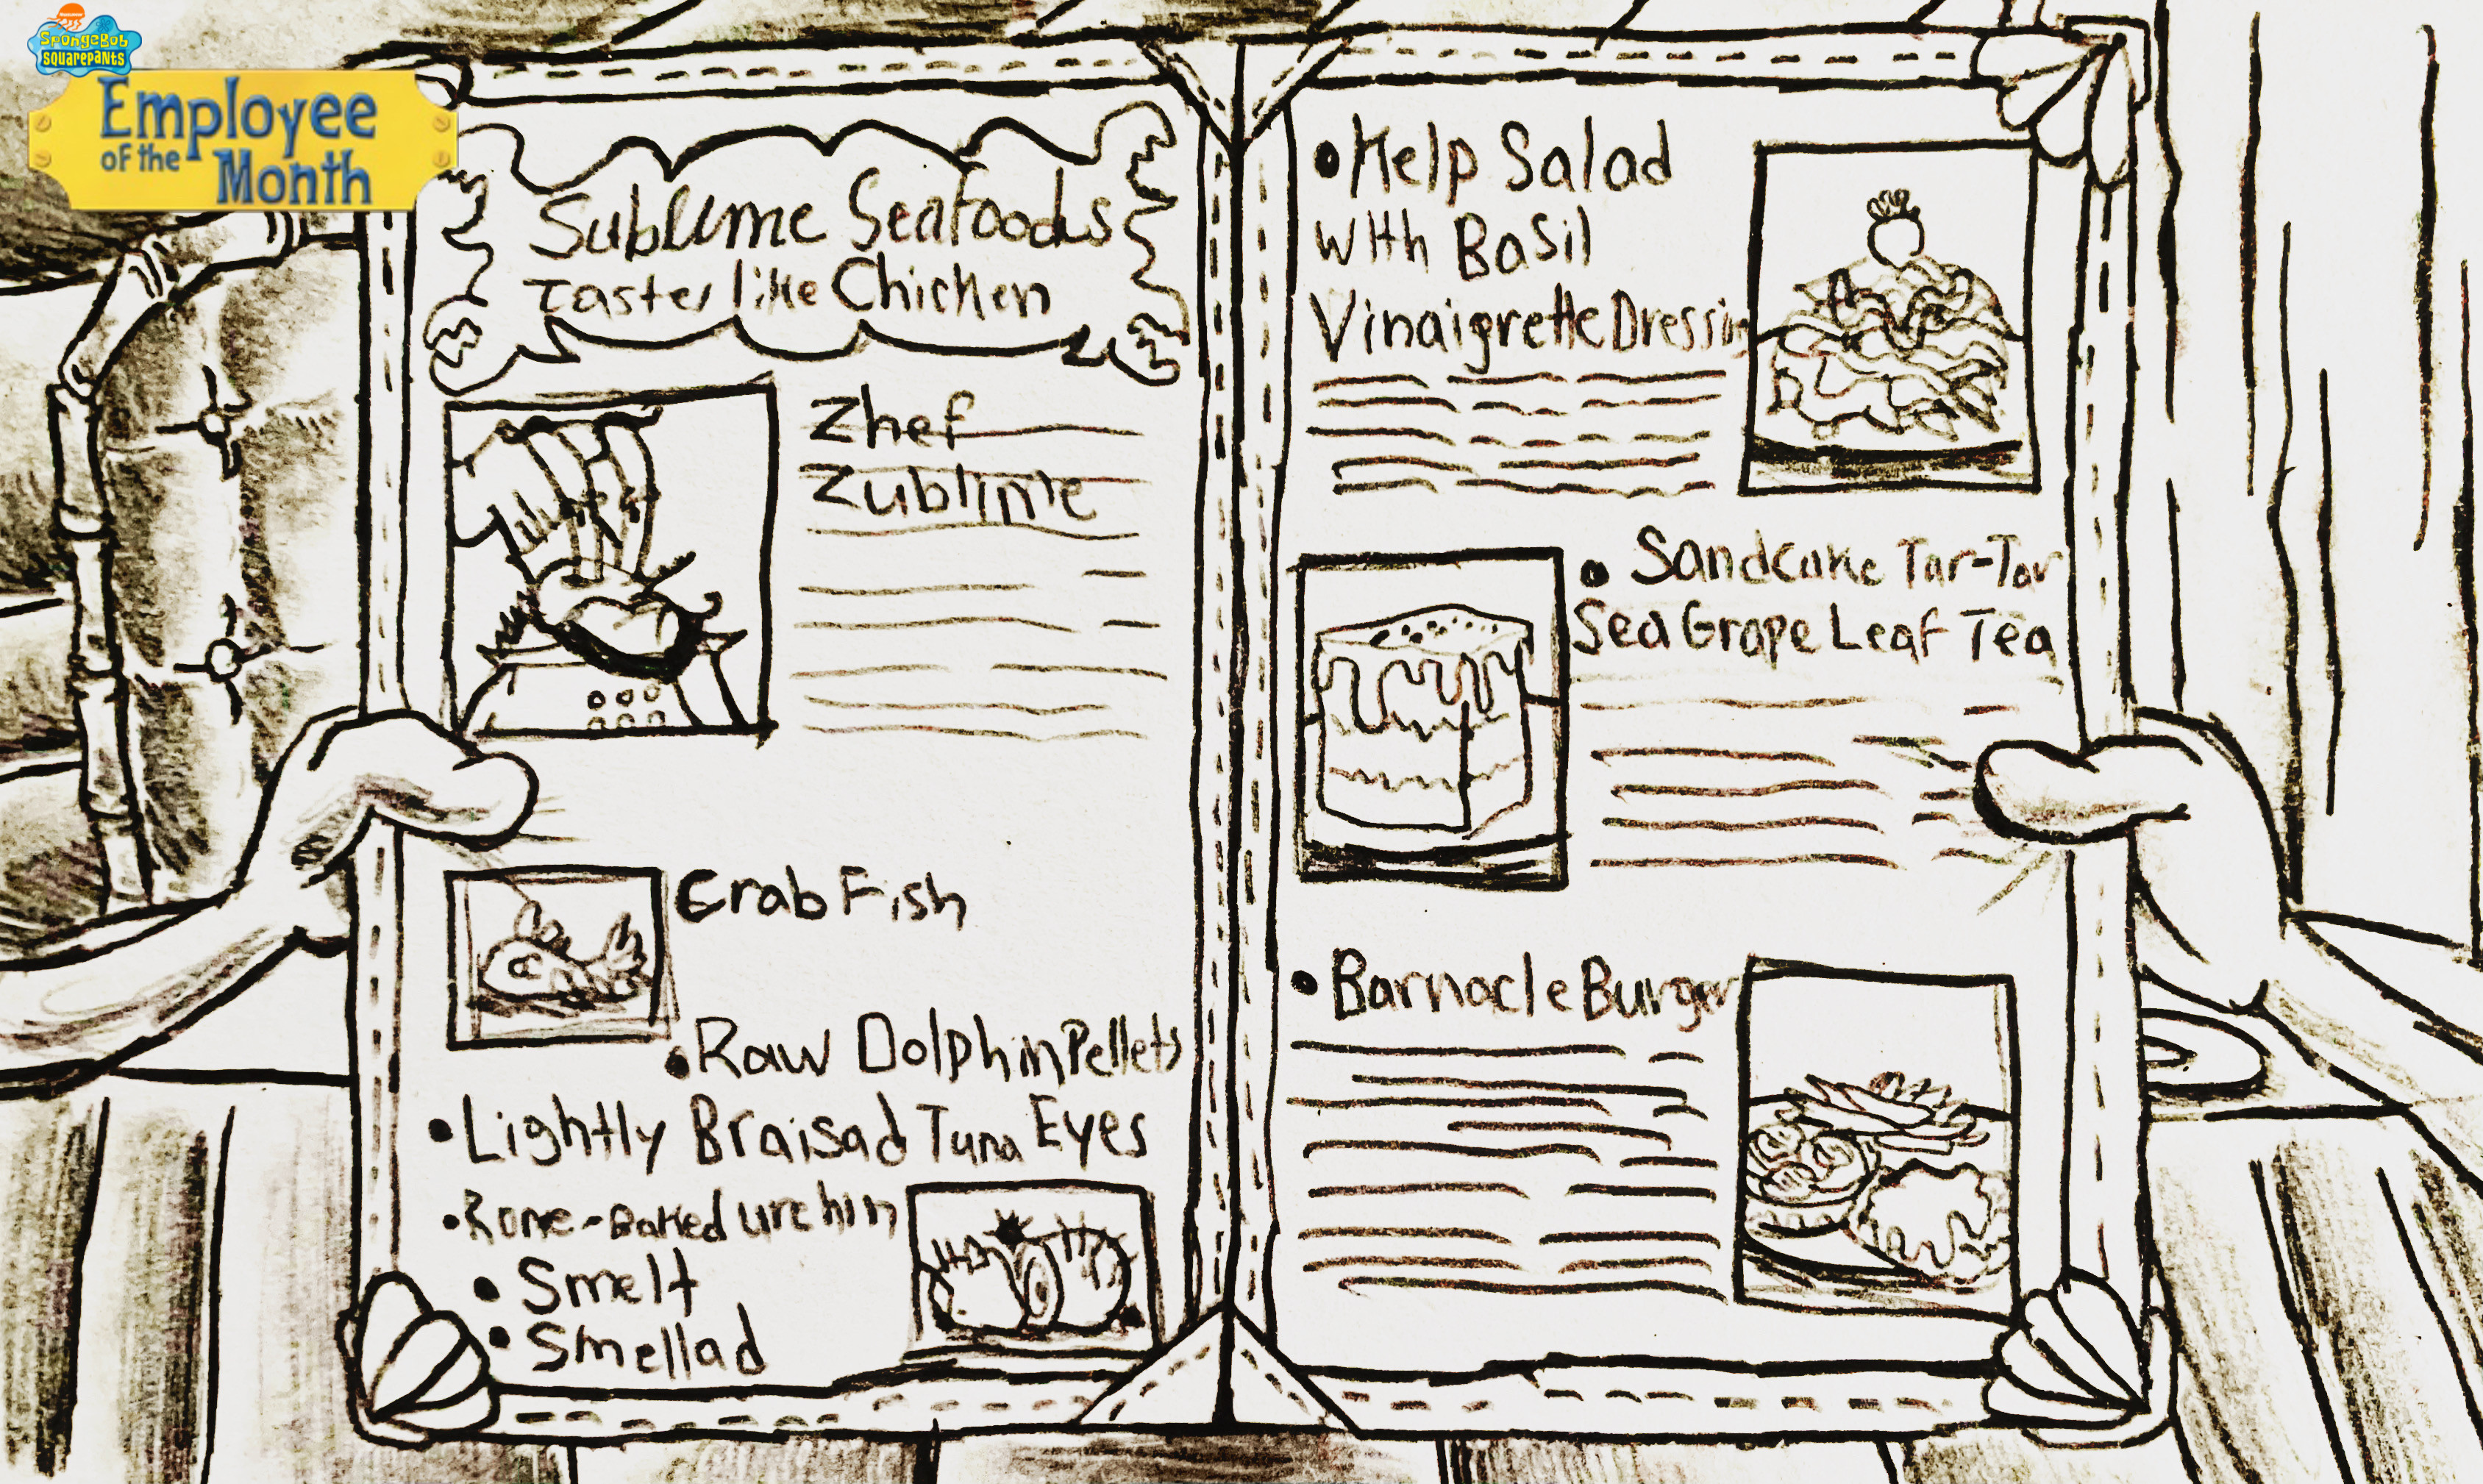 SpongeBob
squarepants
Employee
of the
Month
Sublime Seafoods
Tastes like Chicken
Zhef
Zublime
Crab Fish
•Raw Dolphin Pellets
•Lightly Braisad Tuna Eyes
Baked urchin
• Smelt
• Smellad
•Kelp Salad
with Basil
Vinaigrette Dressing
• Sandcake Tar-Tar
Sea Grape Leaf Tea
• Barnacle Burger